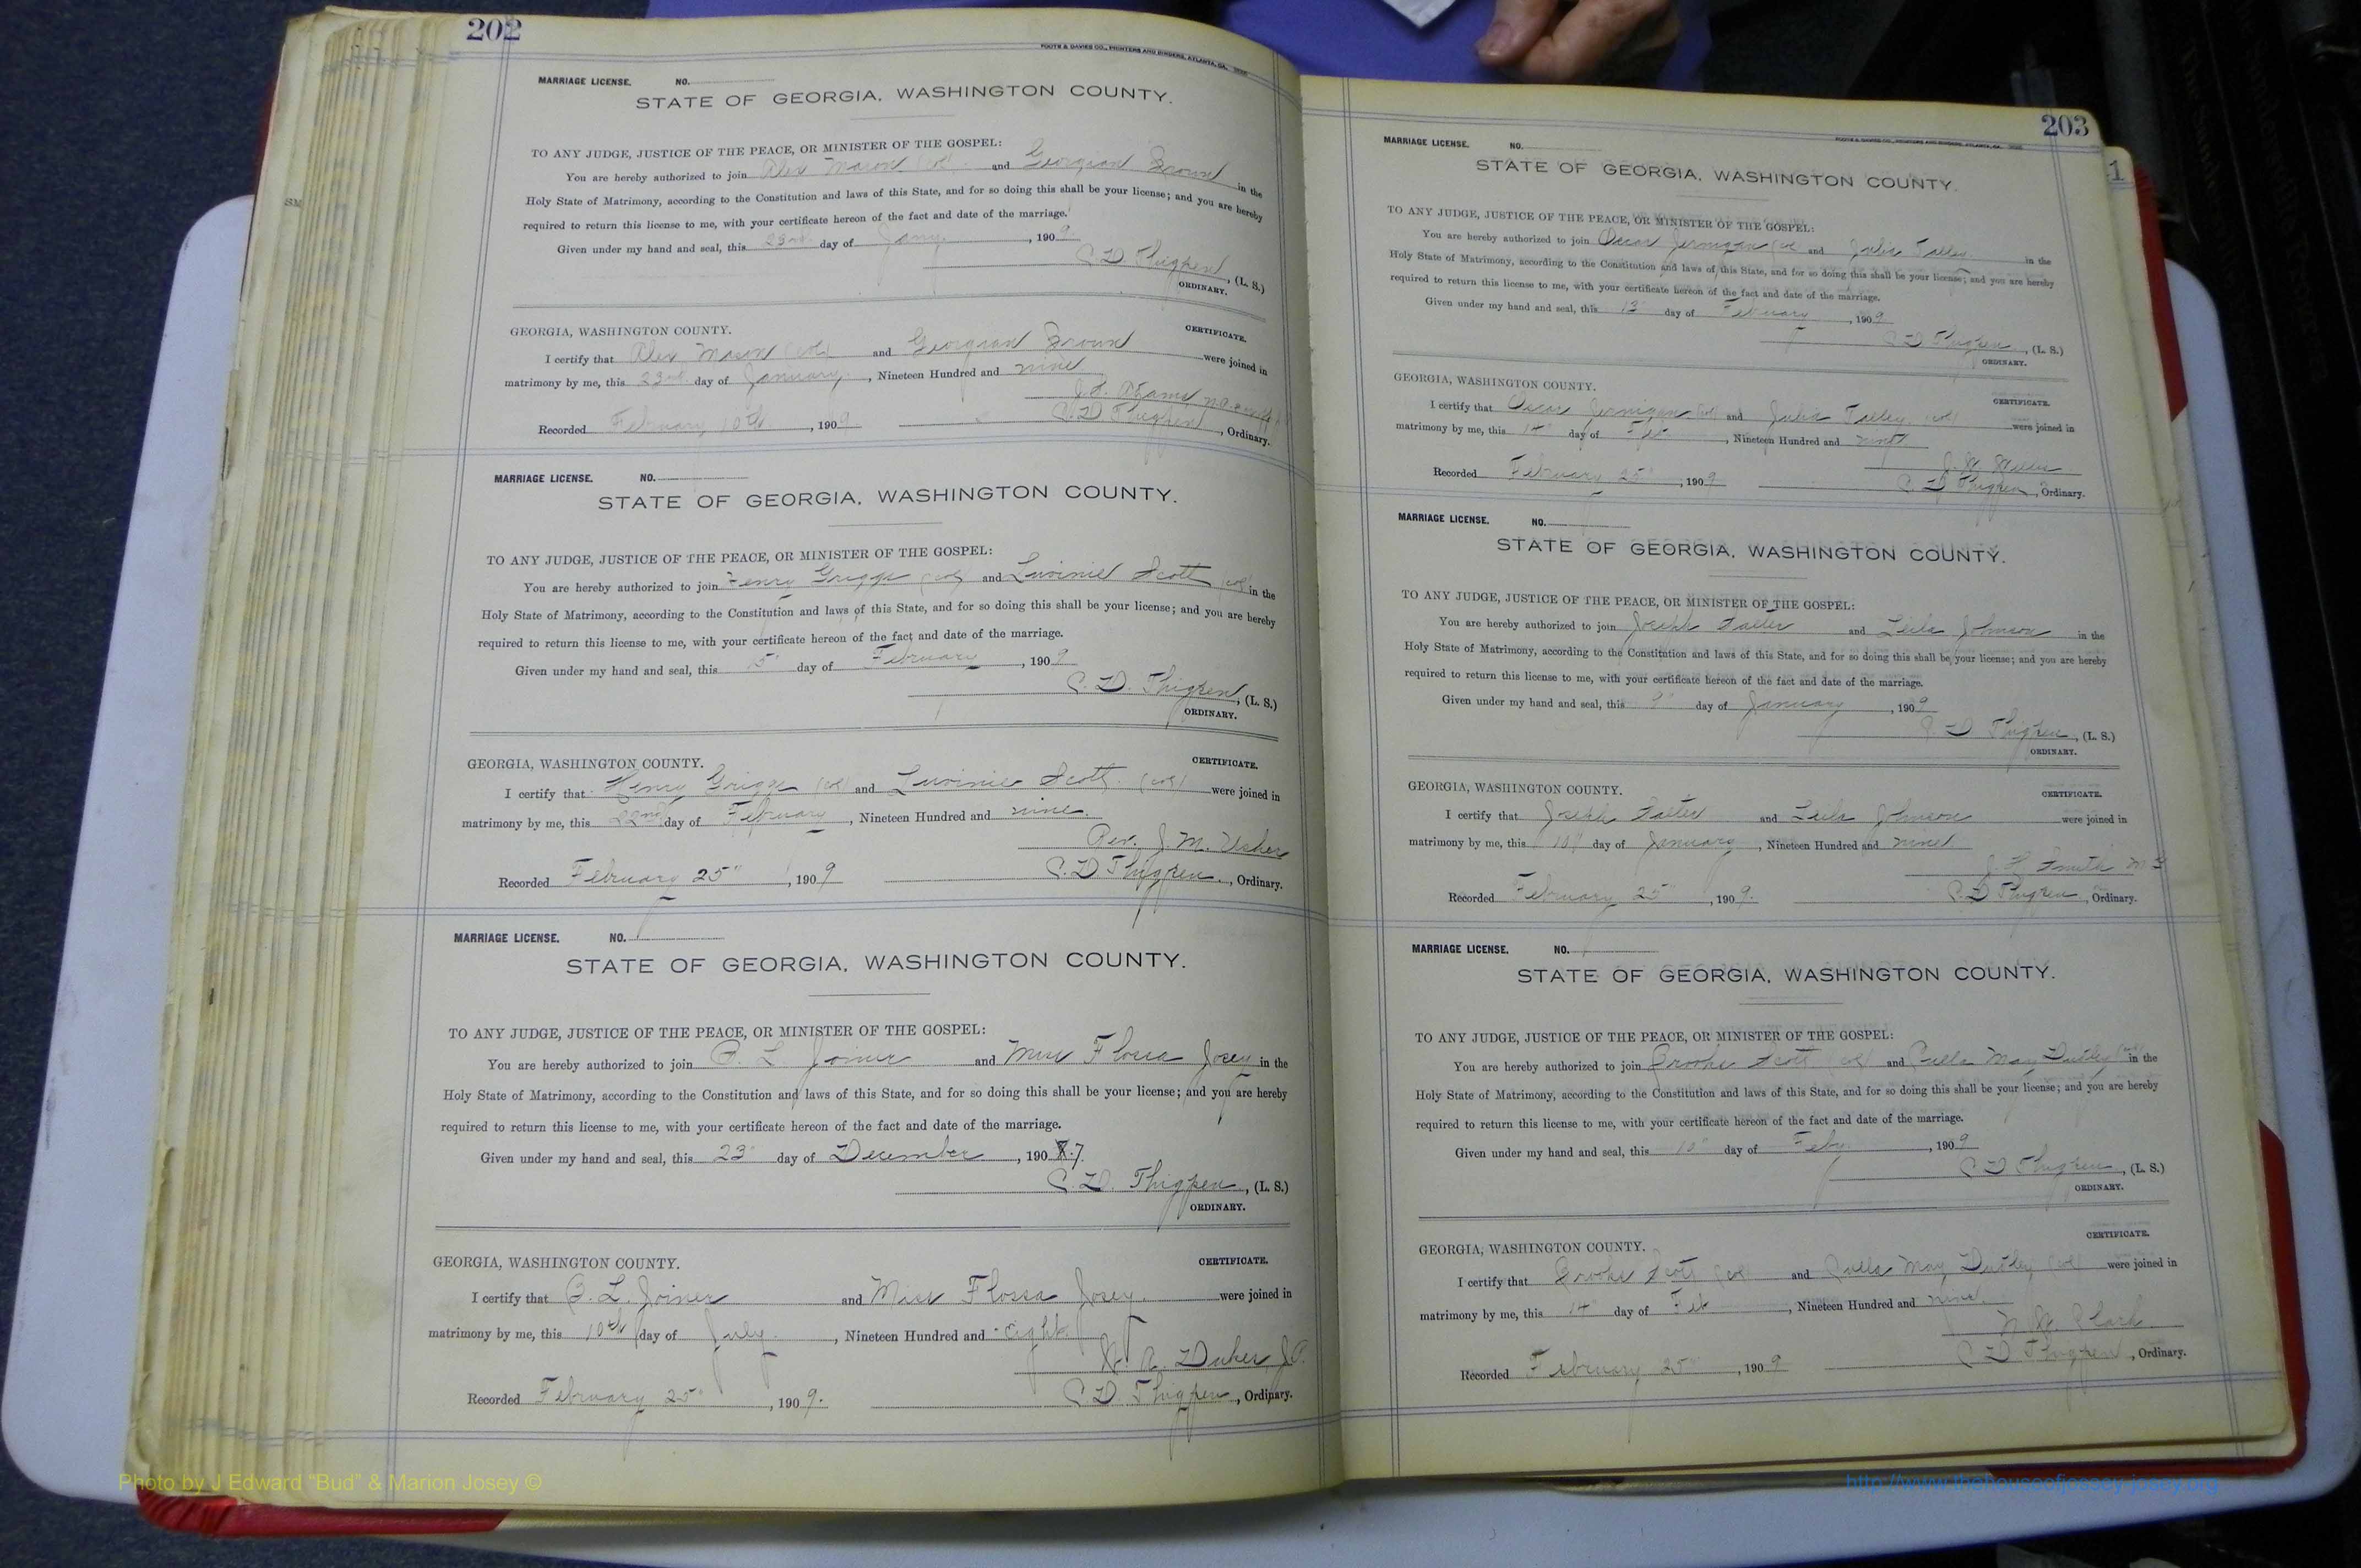 202
FOOTE & DAVIES CO., PRINTERS AND BINDERS, ATLANTA, GA.
MARRIAGE LICENSE. NO.
STATE OF GEORGIA, WASHINGTON COUNTY.
TO ANY JUDGE, JUSTICE OF THE PEACE, OR MINISTER OF THE GOSPEL:
You are hereby authorized to join Alex Mason (col) and Georgian Brown in the
Holy State of Matrimony, according to the Constitution and laws of this State, and for so doing this shall be your license; and you are hereby
required to return this license to me, with your certificate hereon of the fact and date of the marriage.
Given under my hand and seal, this 23rd day of Jany. , 1909.
C. D. Thigpen, (L. S.)
ORDINARY.
GEORGIA, WASHINGTON COUNTY. CERTIFICATE.
I certify that Alex Mason (col) and Georgian Brown were joined in
matrimony by me, this 23rd day of January, Nineteen Hundred and nine
Adams
Recorded February 10th , 1909. C. D. Thigpen, Ordinary.
MARRIAGE LICENSE. NO.
STATE OF GEORGIA, WASHINGTON COUNTY.
TO ANY JUDGE, JUSTICE OF THE PEACE, OR MINISTER OF THE GOSPEL:
You are hereby authorized to join Henry Griggs (col) and Luvinie Scott (col) in the
Holy State of Matrimony, according to the Constitution and laws of this State, and for so doing this shall be your license; and you are hereby
required to return this license to me, with your certificate hereon of the fact and date of the marriage.
Given under my hand and seal, this 15" day of February , 1909
C. D. Thigpen, (L. S.)
ORDINARY.
GEORGIA, WASHINGTON COUNTY. CERTIFICATE.
I certify that Henry Griggs (col) and Luvinie Scott (col) were joined in
matrimony by me, this 22nd day of February , Nineteen Hundred and nine.
Rev. J. M. Usher
Recorded February 25" , 1909 C. D Thigpen, Ordinary.
MARRIAGE LICENSE. NO.
STATE OF GEORGIA, WASHINGTON COUNTY.
TO ANY JUDGE, JUSTICE OF THE PEACE, OR MINISTER OF THE GOSPEL:
You are hereby authorized to join L Joiner and Miss Flossa Josey in the
Holy State of Matrimony, according to the Constitution and laws of this State, and for so doing this shall be your license; and you are hereby
required to return this license to me, with your certificate hereon of the fact and date of the marriage.
Given under my hand and seal, this 23" day of December , 190 7.
C. D. Thigpen, (L. S.)
ORDINARY.
GEORGIA, WASHINGTON COUNTY. CERTIFICATE.
I certify that L. Joiner and Miss Flossa Josey. were joined in
matrimony by me, this 10th day of July. , Nineteen Hundred and eight.
Duker, J.P.
Recorded February 25" , 1909. C. D. Thigpen, Ordinary.
203
FOOTE & DAVIES CO., PRINTERS AND BINDERS, ATLANTA, GA.
1
MARRIAGE LICENSE. NO.
STATE OF GEORGIA, WASHINGTON COUNTY.
TO ANY JUDGE, JUSTICE OF THE PEACE, OR MINISTER OF THE GOSPEL:
You are hereby authorized to join Oscar Jernigan (col and Julia Talley in the
Holy State of Matrimony, according to the Constitution and laws of this State, and for so doing this shall be your license; and you are hereby
required to return this license to me, with your certificate hereon of the fact and date of the marriage.
Given under my hand and seal, this 13" day of February , 1909
C D Thigpen, (L. S.)
ORDINARY.
GEORGIA, WASHINGTON COUNTY. CERTIFICATE.
I certify that Oscar Jernigan (col) and Julia Talley. (col) were joined in
matrimony by me, this 14" day of Feb. , Nineteen Hundred and nine
J. W.
Recorded February 25" , 1909 C. D Thigpen, Ordinary.
MARRIAGE LICENSE. NO.
STATE OF GEORGIA, WASHINGTON COUNTY.
TO ANY JUDGE, JUSTICE OF THE PEACE, OR MINISTER OF THE GOSPEL:
You are hereby authorized to join Joseph and Leila Johnson in the
Holy State of Matrimony, according to the Constitution and laws of this State, and for so doing this shall be your license; and you are hereby
required to return this license to me, with your certificate hereon of the fact and date of the marriage.
Given under my hand and seal, this 9" day of January , 1909
C. D Thigpen, (L. S.)
ORDINARY.
GEORGIA, WASHINGTON COUNTY. CERTIFICATE.
I certify that Joseph and Leila Johnson were joined in
matrimony by me, this 10" day of January , Nineteen Hundred and nine
Smith M G
Recorded February 25" , 1909. C. D Thigpen , Ordinary.
MARRIAGE LICENSE. NO.
STATE OF GEORGIA, WASHINGTON COUNTY.
TO ANY JUDGE, JUSTICE OF THE PEACE, OR MINISTER OF THE GOSPEL:
You are hereby authorized to join Brooks Scott (col) and May (col) in the
Holy State of Matrimony, according to the Constitution and laws of this State, and for so doing this shall be your license; and you are hereby
required to return this license to me, with your certificate hereon of the fact and date of the marriage.
Given under my hand and seal, this day of Feby. , 1909
C D Thigpen, (L. S.)
ORDINARY.
GEORGIA, WASHINGTON COUNTY. CERTIFICATE.
I certify that Brooks Scott (col) and May (col) were joined in
matrimony by me, this 14" day of Feb , Nineteen Hundred and nine.
Clark.
Recorded February 25" , 1909 C D Thigpen , Ordinary.
Photo by J Edward "Bud" & Marion Josey ©
http://www.thehouseofjossey-josey.org